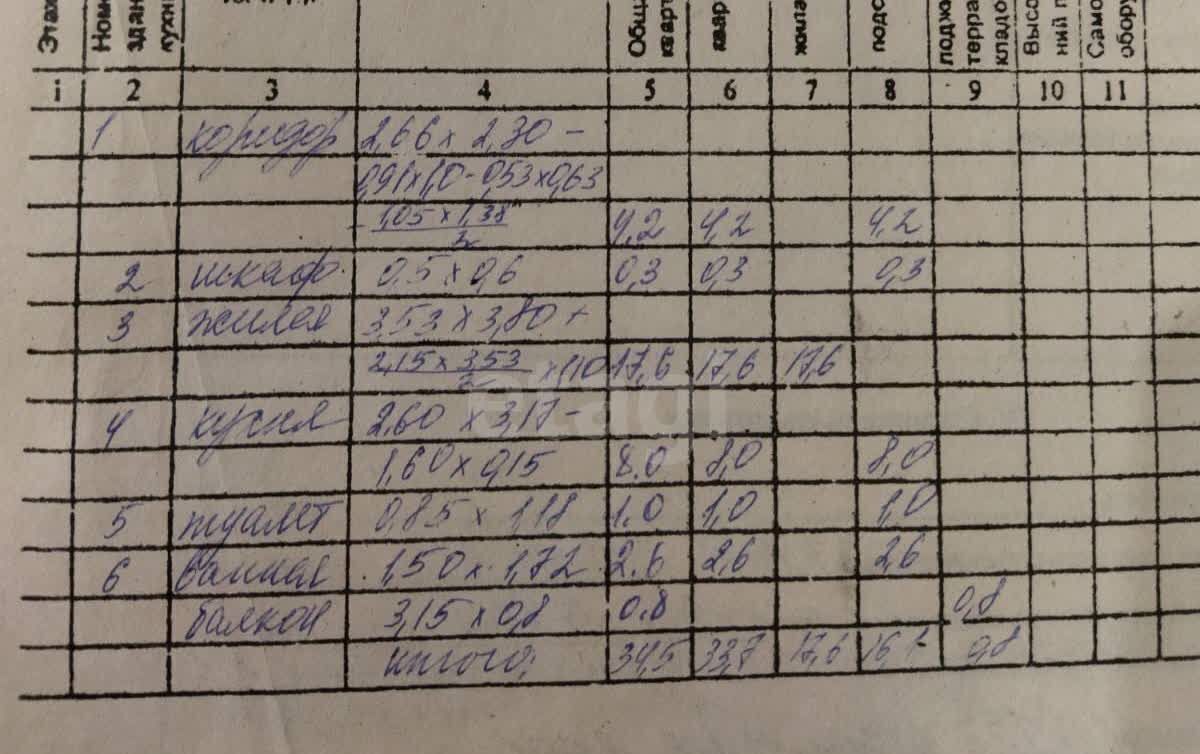 Этаж
Номе
здан
кухн
Обща
кварт
квар
жила
подс
подж
терра
кладо
Высо
ний п
Само
обору
1 2 3 4 5 6 7 8 9 10 11
1 коридор 2,66 x 2,30 -
0,91 x 1,0 - 0,53 x 0,63
- 1,05 x 1,38 4,2 4,2 4,2
2
2 шкаф 0,5 x 0,6 0,3 0,3 0,3
3 жилая 3,53 x 3,80 +
2,15 x 3,53 17,6 17,6 17,6
2
4 кухня 2,60 x 3,17 -
1,60 x 0,15 8.0 8,0 8,0
5 туалет 0,85 x 1,18 1.0 1,0 1,0
6 ванная 1,50 x 1,72 2.6 2,6 2,6
балкон 3,15 x 0,8 0.8 0,8
итого: 34,5 33,7 17,6 16,1 0,8
etagi